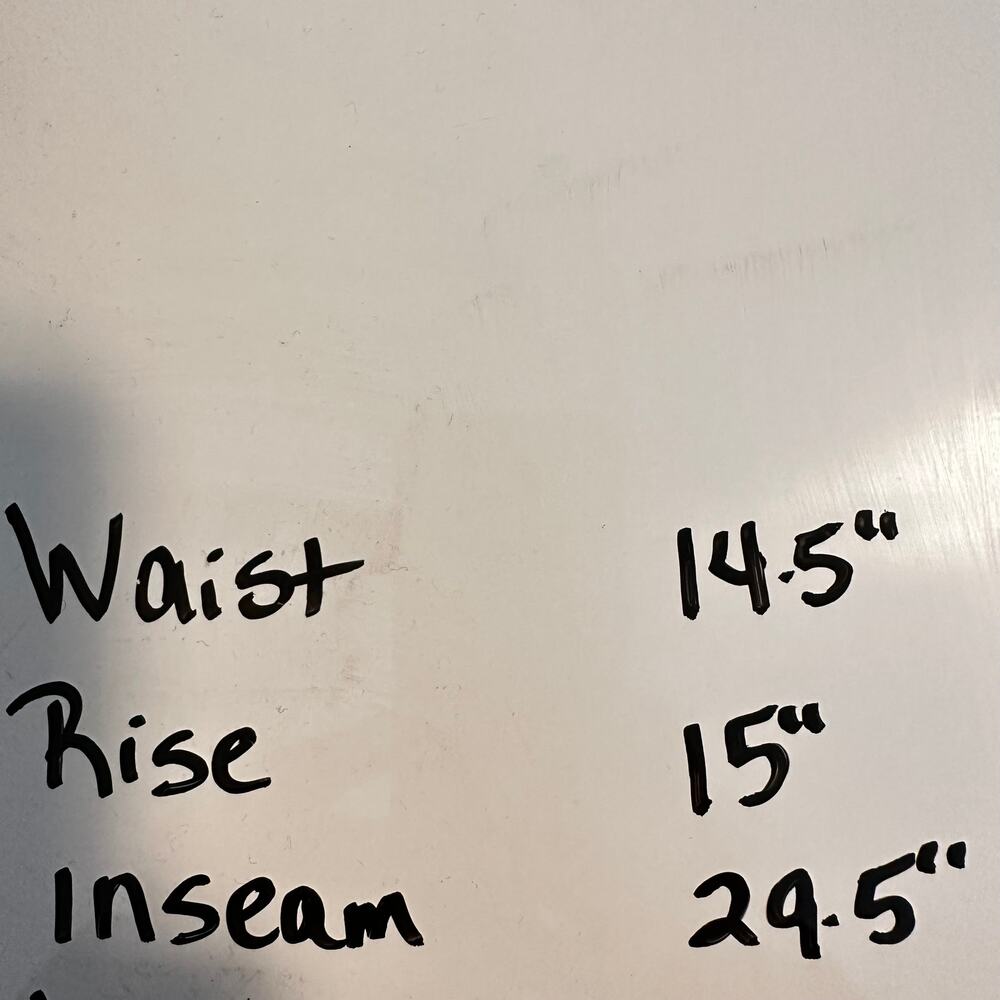 Waist 14.5"
Rise 15"
Inseam 29.5"